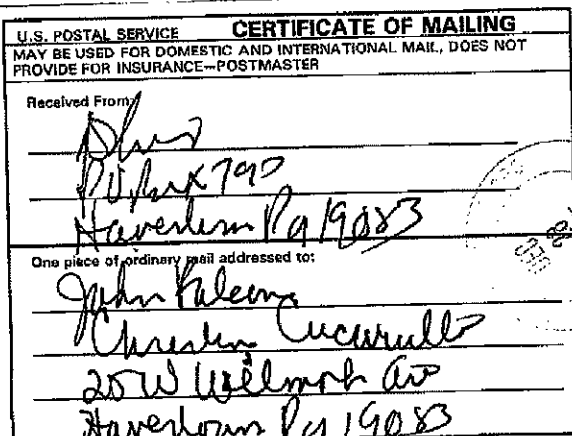 U.S. POSTAL SERVICE CERTIFICATE OF MAILING
MAY BE USED FOR DOMESTIC AND INTERNATIONAL MAIL, DOES NOT
PROVIDE FOR INSURANCE—POSTMASTER
Received From:
P.O. Box 790
Havertown Pa 19083
One piece of ordinary mail addressed to:
John
Cucarullo
20 W Ave
Havertown Pa 19083